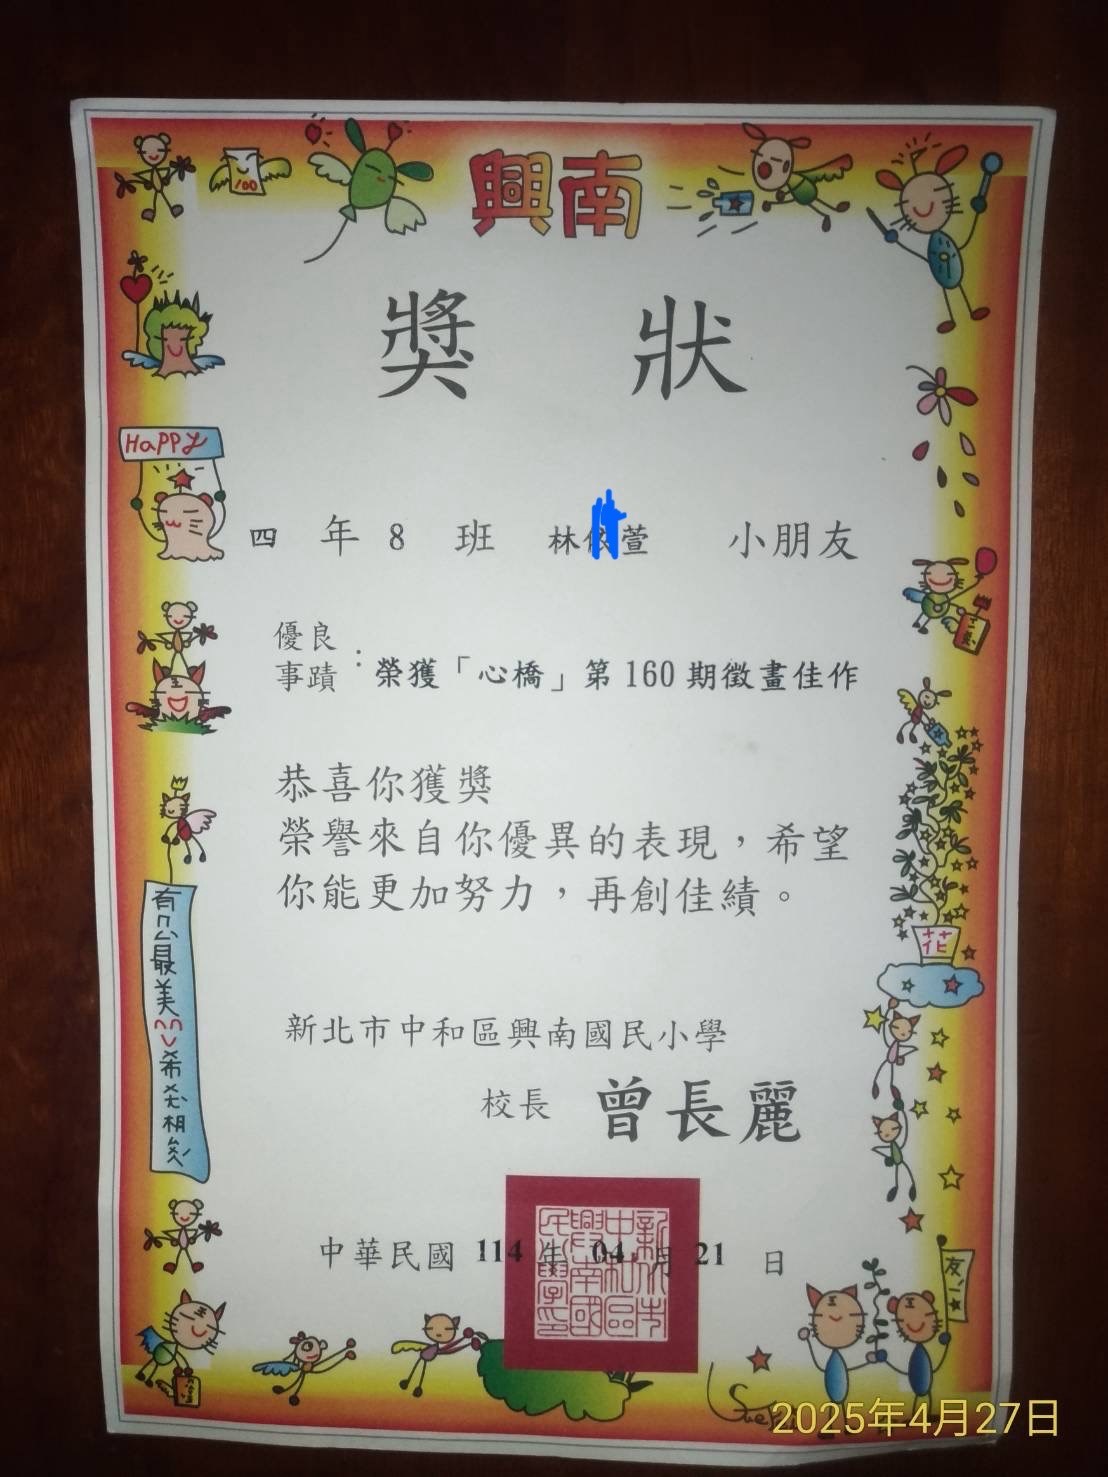 興南
100
獎狀
HaPPY
四 年 8 班 林 萱 小朋友
優良
事蹟：榮獲「心橋」第 160 期徵畫佳作
恭喜你獲獎
榮譽來自你優異的表現，希望
你能更加努力，再創佳績。
花
新北市中和區興南國民小學
校長 曾長麗
中華民國 114 年 04 月 21 日
新北市
中和區
興南國
民小學印
2025年4月27日